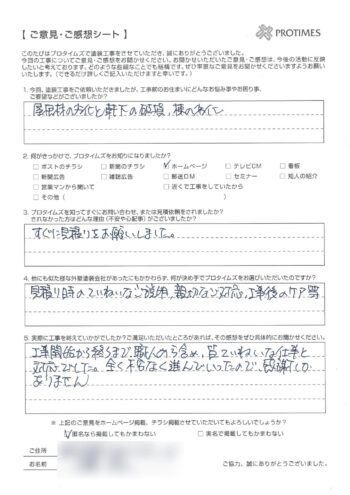 【 ご意見・ご感想シート 】
PROTIMES
このたびはプロタイムズで塗装工事をさせていただき、誠にありがとうございました。
今回の工事についてご意見・ご感想をお聞かせください。お聞かせいただいたご意見・ご感想は、今後の活動に反映
したいと考えております。どのような些細なことでも結構です。ぜひ率直なご意見をお聞かせくださいますようお願い
いたします。（できるだけ詳しくご記入いただけますと幸いです。）
1. 今回、塗装工事をご依頼いただきましたが、工事前のお住まいにどんなお悩み事やお困り事、
ご要望などがございましたか？
屋根材の劣化と軒下の破損、棟の劣化
2. 何がきっかけで、プロタイムズをお知りになりましたか？
□ ポストのチラシ □ 新聞のチラシ ☑ ホームページ □ テレビCM □ 看板
□ 新聞広告 □ 雑誌広告 □ 郵送DM □ セミナー □ 知人の紹介
□ 営業マンから聞いて □ 近くで工事をしていたから
□ その他（ ）
3. プロタイムズを知ってすぐにお問い合わせ、または見積依頼をされましたか？
されなかった方はどんな理由（不安や心配事）がございましたか？
すぐに見積りをお願いしました。
4. 他にも似た様な外壁塗装会社があったにもかかわらず、何が決め手でプロタイムズをお選びいただいたのですか？
見積り時のていねいなご説明、親切な対応、工事後のケア等
5. 実際に工事を終えていかがでしたか？ご満足いただいたところがあれば、その感想をぜひ具体的にお聞かせください。
工事開始から終るまで職人の方含め、皆ていねいな仕事と
対応でした。全く不安なく進んでいったので、感謝しか
ありません
※ 上記のご意見をホームページ掲載、チラシ掲載させていただいてもよろしいでしょうか？
☑匿名なら掲載してもかまわない □ 実名で掲載してもかまわない
ご住所
お名前
ご協力、誠にありがとうございました。